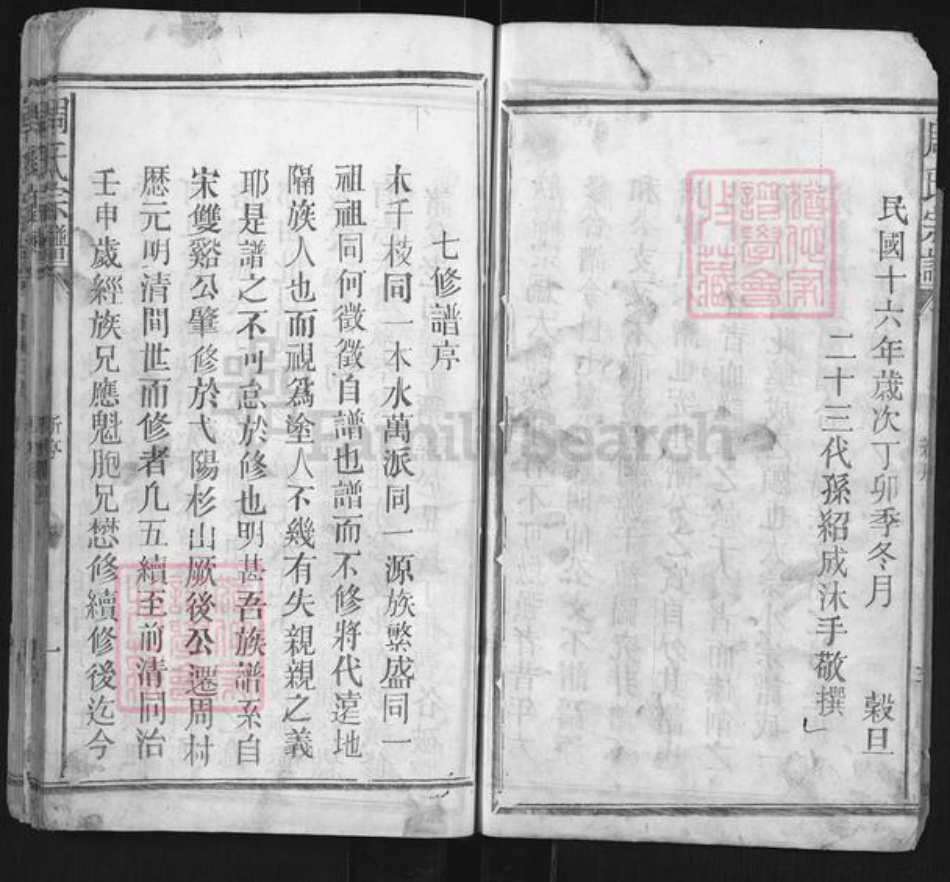 周氏宗譜
民國十六年歲次丁卯季冬月 穀旦
二十三代孫紹成沐手敬撰
七修譜序
木千枝同一本水萬派同一源族繁盛同一
祖祖同何徵徵自譜也譜而不修將代遠地
隔族人也而視爲塗人不幾有失親親之義
耶是譜之不可怠於修也明甚吾族譜系自
宋雙谿公肇修於弋陽杉山厥後公遷周村
歷元明清間世而修者凢五續至前清同治
壬申歲經族兄應魁胞兄懋修續修後迄今
周氏宗譜
新序
一
FamilySearch